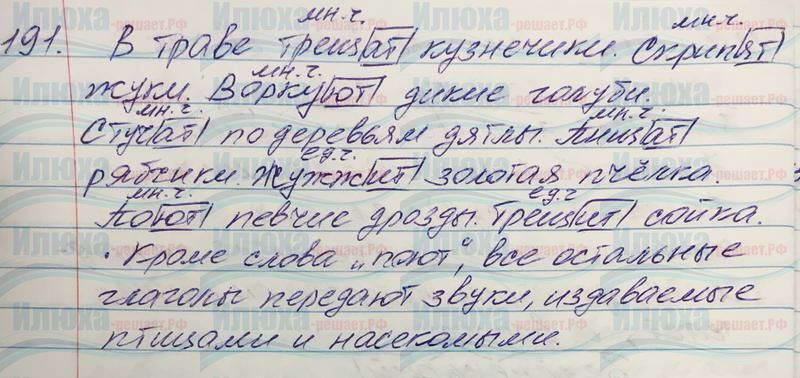 мн.ч. мн.ч.
191. В траве трещат кузнечики. Скрипят
мн.ч.
жуки. Воркуют дикие голуби.
мн.ч. мн.ч.
Стучат по деревьям дятлы. Пищат
ед.ч.
рябчики. Жужжит золотая пчёлка.
мн.ч. ед.ч
Поют певчие дрозды. Трещит сойка.
· Кроме слова „поют“, все остальные
глаголы передают звуки, издаваемые
птицами и насекомыми.